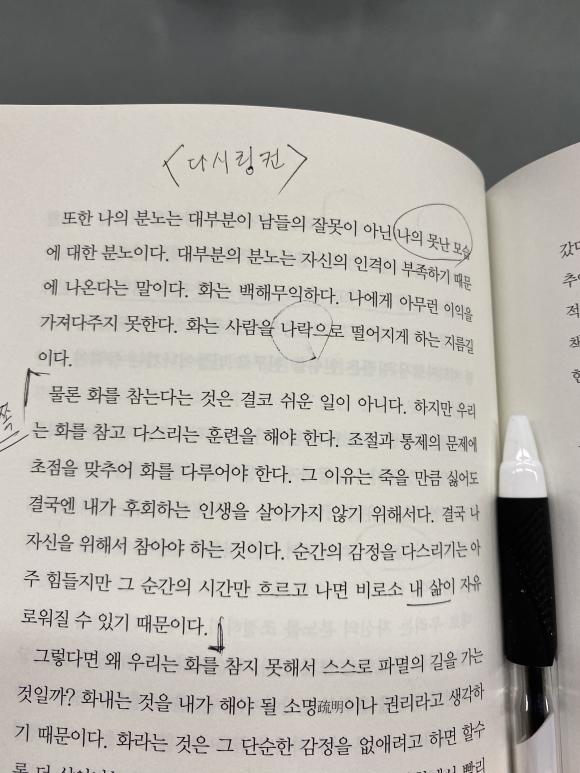 <다시링컨>
또한 나의 분노는 대부분이 남들의 잘못이 아닌 나의 못난 모습
에 대한 분노이다. 대부분의 분노는 자신의 인격이 부족하기 때문
에 나온다는 말이다. 화는 백해무익하다. 나에게 아무런 이익을
가져다주지 못한다. 화는 사람을 나락으로 떨어지게 하는 지름길
이다.
물론 화를 참는다는 것은 결코 쉬운 일이 아니다. 하지만 우리
는 화를 참고 다스리는 훈련을 해야 한다. 조절과 통제의 문제에
초점을 맞추어 화를 다루어야 한다. 그 이유는 죽을 만큼 싫어도
결국엔 내가 후회하는 인생을 살아가지 않기 위해서다. 결국 나
자신을 위해서 참아야 하는 것이다. 순간의 감정을 다스리기는 아
주 힘들지만 그 순간의 시간만 흐르고 나면 비로소 내 삶이 자유
로워질 수 있기 때문이다.
그렇다면 왜 우리는 화를 참지 못해서 스스로 파멸의 길을 가는
것일까? 화내는 것을 내가 해야 될 소명疏明이나 권리라고 생각하
기 때문이다. 화라는 것은 그 단순한 감정을 없애려고 하면 할수
쪽
갔다
추
적
책
한